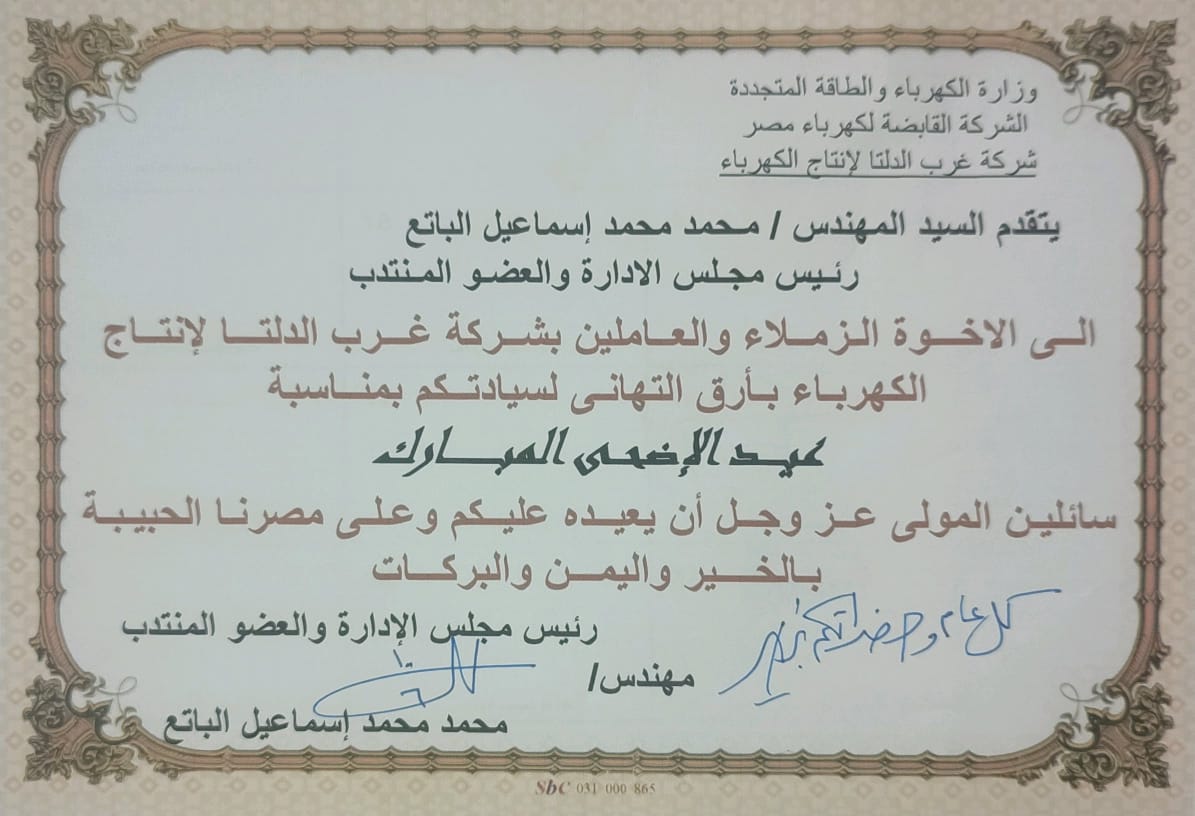 وزارة الكهرباء والطاقة المتجددة
الشركة القابضة لكهرباء مصر
شركة غرب الدلتا لإنتاج الكهرباء
يتقدم السيد المهندس / محمد محمد إسماعيل الباتع
رئيس مجلس الادارة والعضو المنتدب
الى الاخوة الزملاء والعاملين بشركة غرب الدلتا لإنتاج
الكهرباء بأرق التهانى لسيادتكم بمناسبة
عيد الإضحى المبارك
سائلين المولى عز وجل أن يعيده عليكم وعلى مصرنا الحبيبة
بالخير واليمن والبركات
كل عام وحضراتكم بخير
رئيس مجلس الإدارة والعضو المنتدب
مهندس/
محمد محمد إسماعيل الباتع
SbC 031 000 865